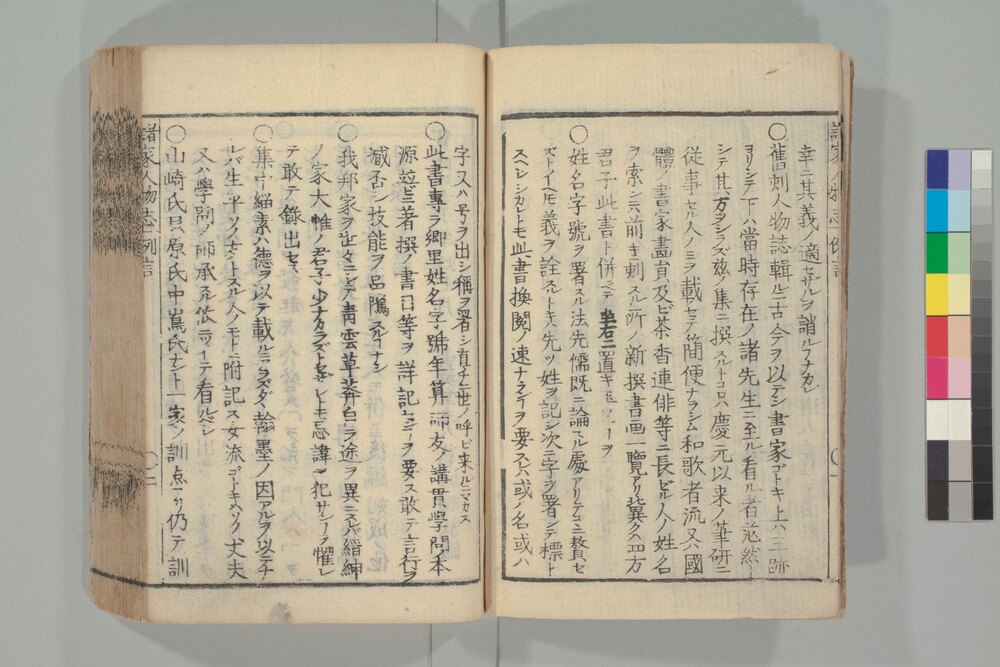 幸ニ其義ノ適セザルヲ誚ルフナカレ
〇舊刺人物誌輯ルニ古今ヲ以テシ書家ゴトキ上ハ三跡
ヨリシテ下ハ當時存在ノ諸先生ニ至ル看ル者茫然ト
シテ其方ヲシラズ茲ノ集ニ撰スルトコロ只慶元以来ノ筆研ニ
從事セル人ノミヲ載セテ簡便ナラシム和歌者流又ハ國
體ノ書家畫者及ビ茶香連俳等ニ長ゼル人ノ姓名
ヲ索ントハ前キニ刺スル所ノ新撰書画一覧アリ冀クハ四方ノ
君子此書ト併ベテ坐右ニ置キ玉ハンヿヲ
〇姓名字號ヲ署スル法先儒既ニ論スル處アリテコニ贅セ
ズトイヘトモ義ヲ詮スルトキハ先ツ姓ヲ記シ次ニ字ヲ署シテ標ト
スヘシシカレトモ此書換閲ノ速ナランヿヲ要スレバ或ハ名或ハ
字又ハ号ヲ出シ稱ヲ署シ直チニ世ノ呼ビ来ルニマカス
〇此書專ラ郷里姓名字號年算師友ノ講貫學問ノ本
源並ビニ著撰ノ書目等ヲ詳記センヿヲ要ス敢テ言行ヲ
臧否シ技能ヲ品隲スルヿナシ
〇我邦家ヲ世々ニシテ青雲草莽自ラ途ヲ異ニスレバ縉紳
ノ家大帷ノ君子少ナカラズトイヘドモ忌諱ヲ犯サンヿヲ懼レ
テ敢テ錄出セズ
〇集中緇素ハ徳ヲ以テ載ルニアラズタダ翰墨ノ因アルヲ以ニナ
レバ生平ソノ友トスル人ノモトニ附記ス女流ゴトキハソノ丈夫
又ハ學問ノ師承スル攸ニツイテ看ルベシ
〇山崎氏貝原氏中嶌氏ナド一家ノ訓点アリ仍テ訓
諸家人物志 例言
諸家人物志 例言
〇二